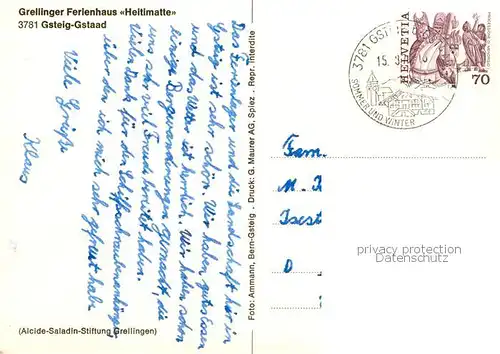 Grellinger Ferienhaus «Heitimatte»
3781 Gsteig-Gstaad
Das Ferienlager und die Landschaft hier in
Gsteig ist sehr schön. Wir haben gutes Essen
und das Wetter ist herrlich. Wir haben schon
einige Bergwanderungen gemacht, die
uns sehr viel Freude bereitet haben.
Vielen Dank für den Schiffschraubenanhänger
über den ich mich sehr gefreut habe.
Viele Grüße
Klaus
(Alcide-Saladin-Stiftung Grellingen)
Foto: Ammann, Bern-Gsteig . Druck: G. Maurer AG, Spiez . Repr. interdite
3781 GST
15.
SOMMER UND WINTER
HELVETIA
70
Fam.
M.
Isest
D
privacy protection
Datenschutz